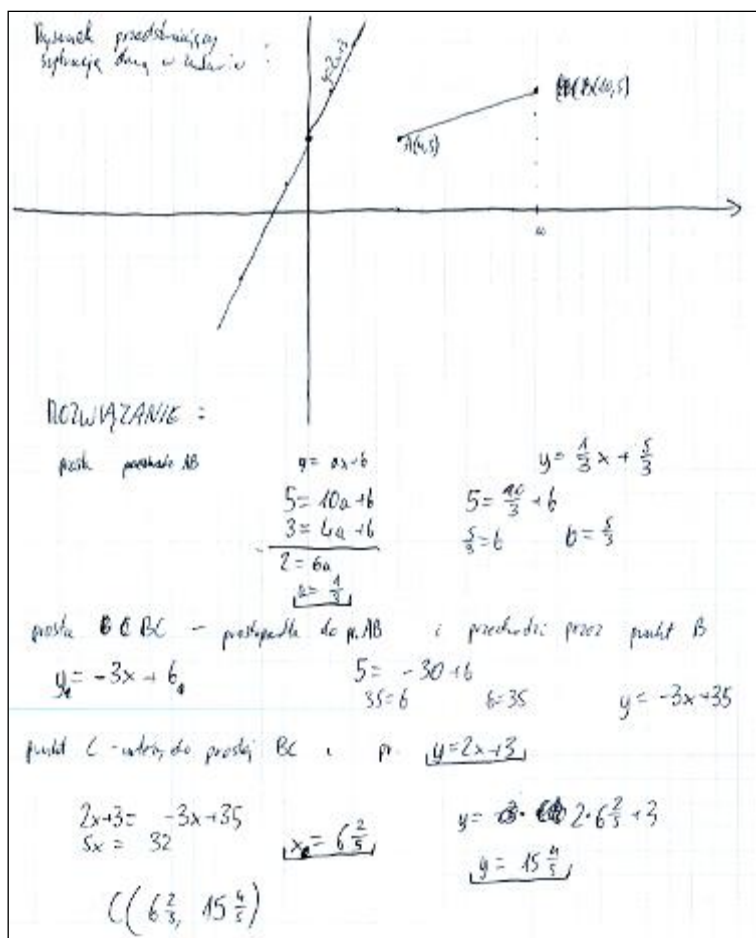 Rysunek przedstawiający
sytuację daną w zadaniu :
y=2x+3
B(10,5)
A(4,3)
10
ROZWIĄZANIE :
prosta AB
y = ax+b
y = 1/3 x + 5/3
5 = 10a + b
3 = 4a + b
2 = 6a
a = 1/3
5 = 10/3 + b
5/3 = b b = 5/3
prosta BC – prostopadła do p. AB i przechodzi przez punkt B
y = -3x + b
5 = -30 + b
35 = b b = 35 y = -3x+35
punkt C - należy do prostej BC i pr. y=2x+3
2x+3 = -3x+35
5x = 32
x = 6 2/5
y = 2·6 2/5 + 3
y = 15 4/5
C(6 2/5, 15 4/5)